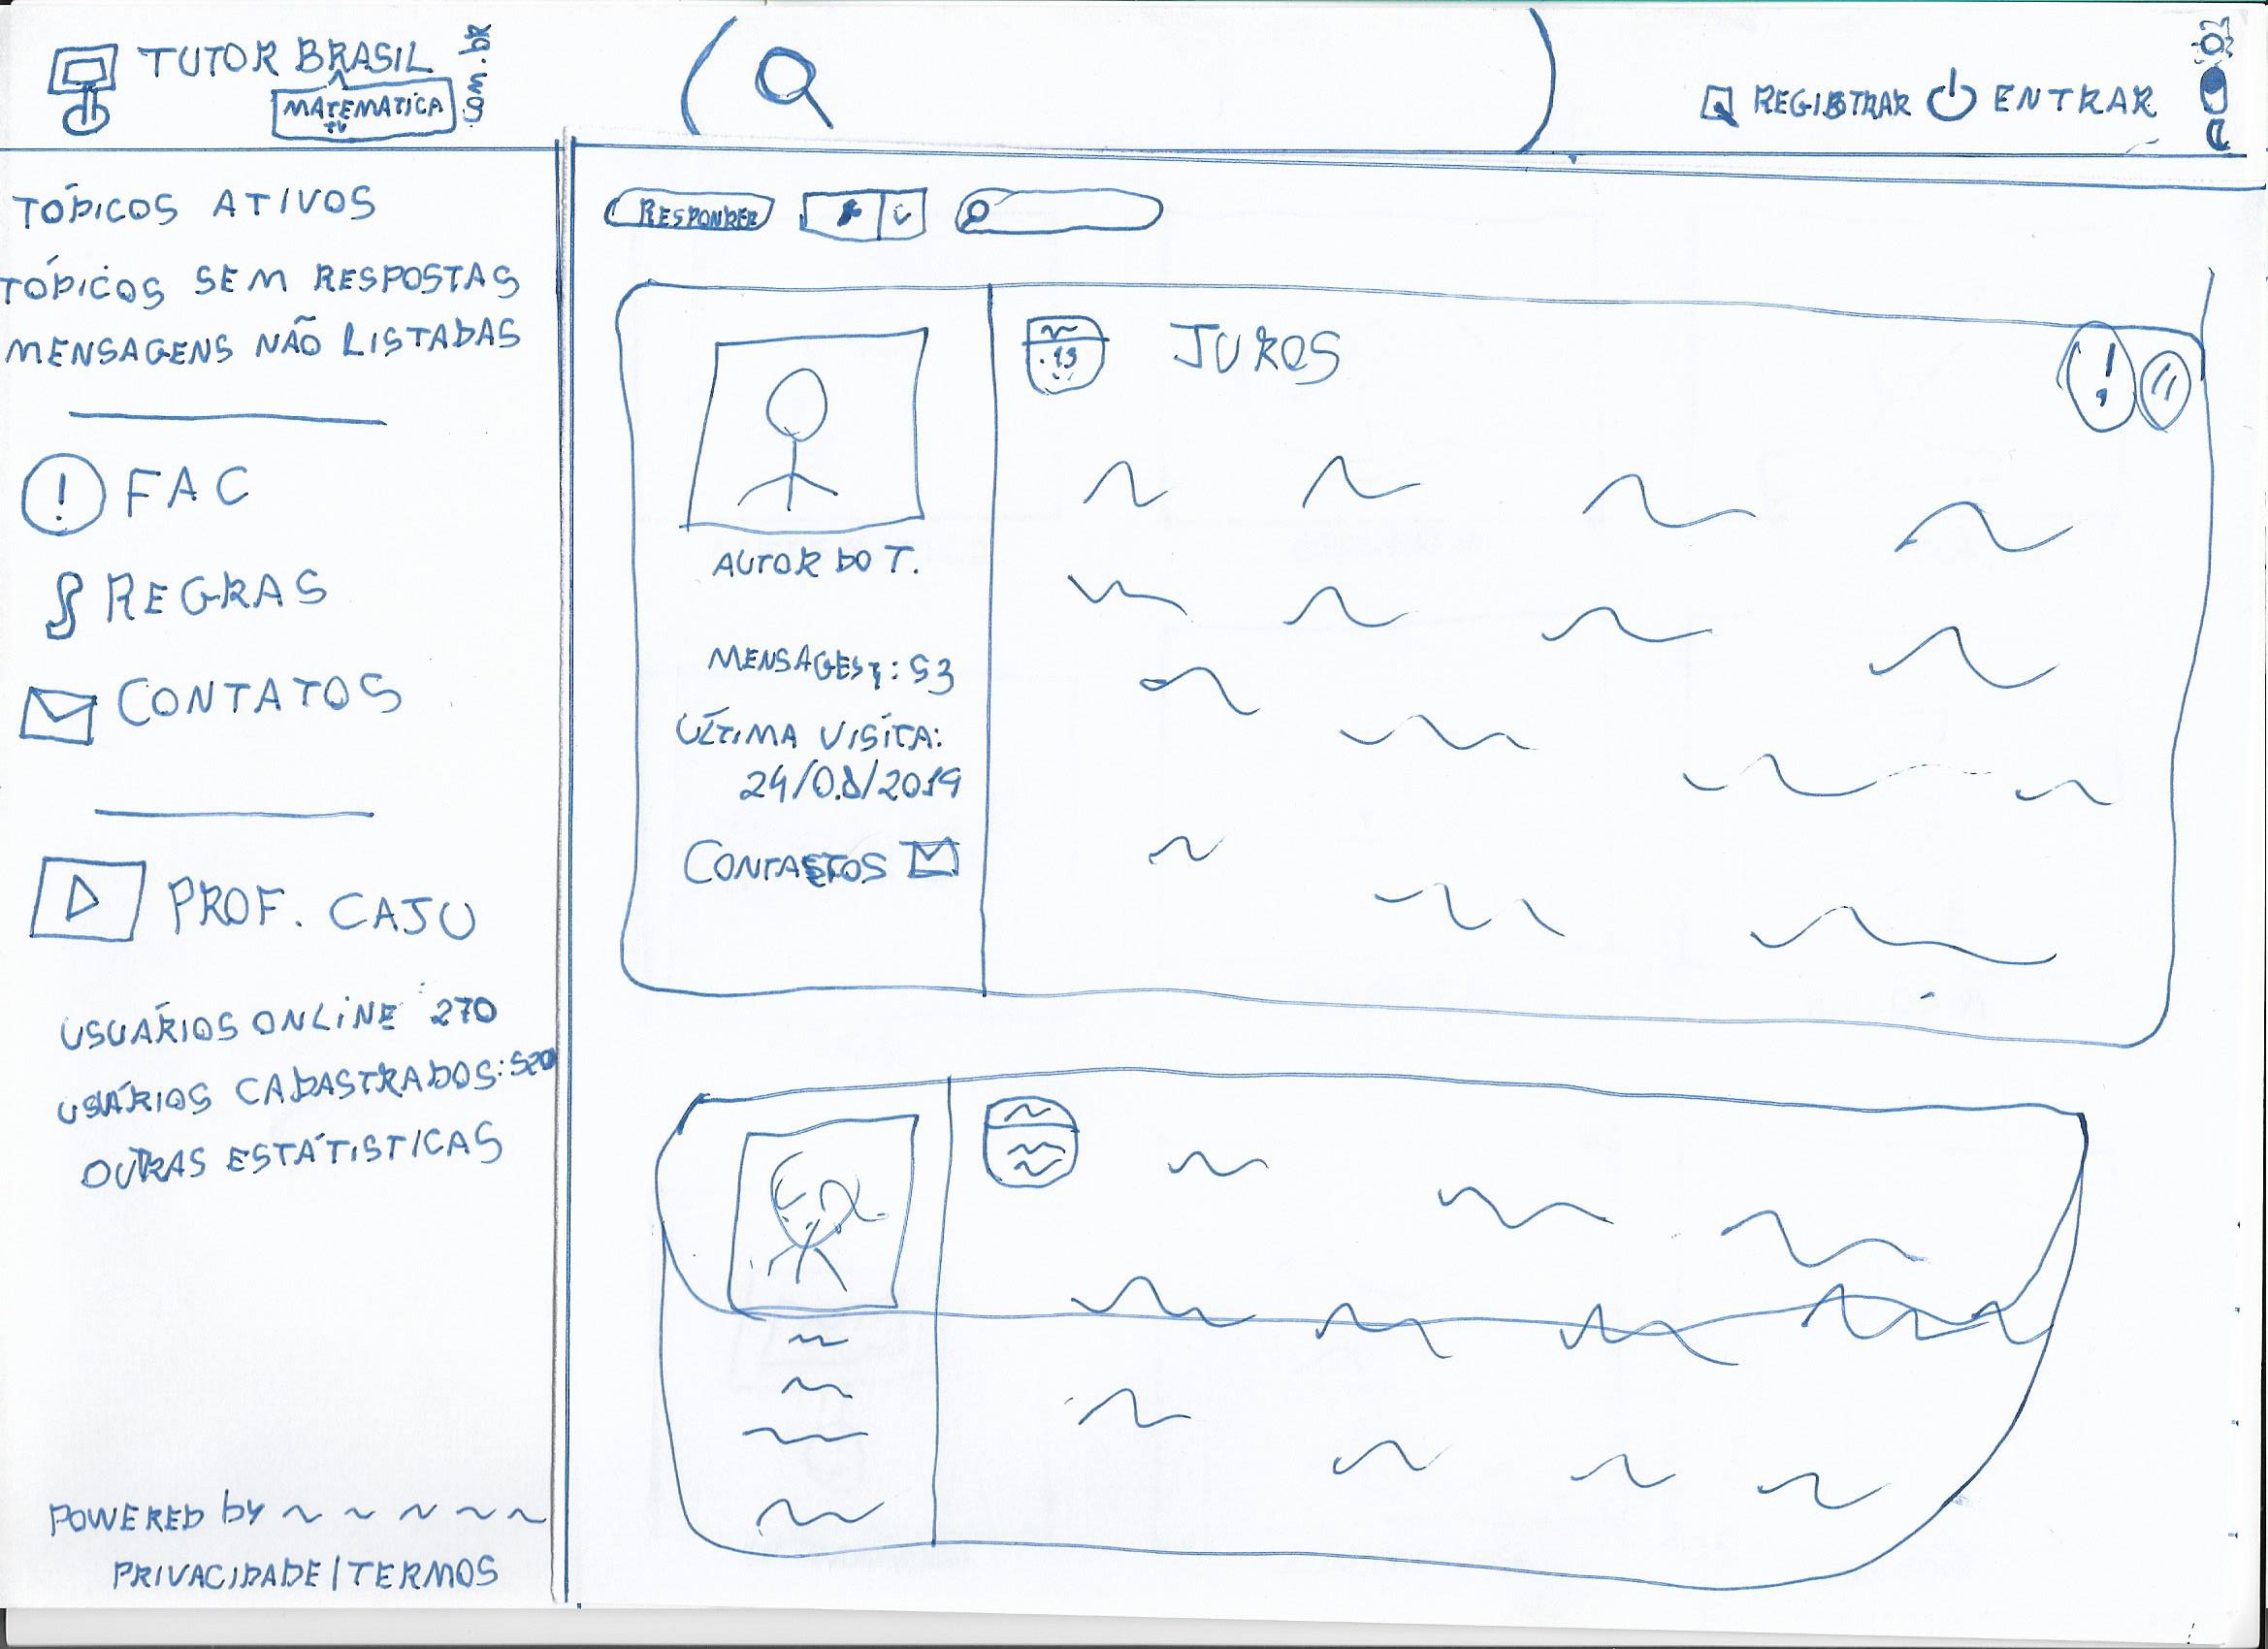 TUTOR BRASIL
.com.br
MATEMATICA
TV
REGISTRAR
ENTRAR
TÓPICOS ATIVOS
TÓPICOS SEM RESPOSTAS
MENSAGENS NÃO LISTADAS
! FAC
REGRAS
CONTATOS
PROF. CAJU
USUÁRIOS ONLINE 270
USUÁRIOS CADASTRADOS: 520
OUTRAS ESTÁTISTICAS
POWERED by
PRIVACIDADE/TERMOS
RESPONDER
AUTOR DO T.
53
ÚLTIMA VISITA:
24/08/2019
JUROS
!